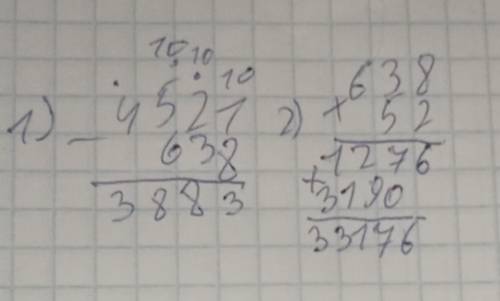 10 10 10
1) - 4521
638
3883
2) × 638
52
1276
+ 3190
33176